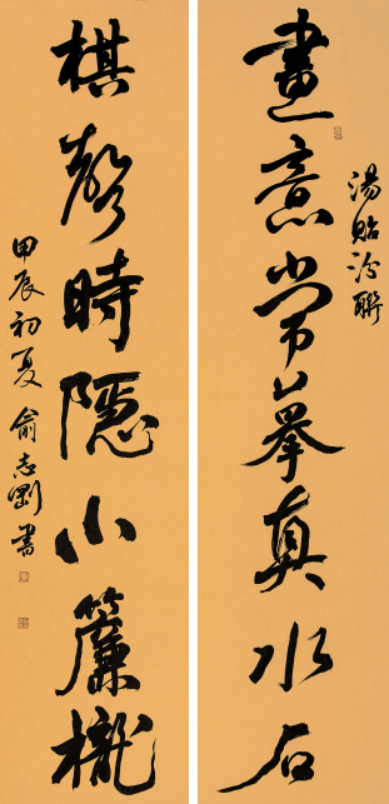 湯貽汾聯
畫意常摹真水石
棋聲時隱小簾櫳
甲辰初夏俞志剛書